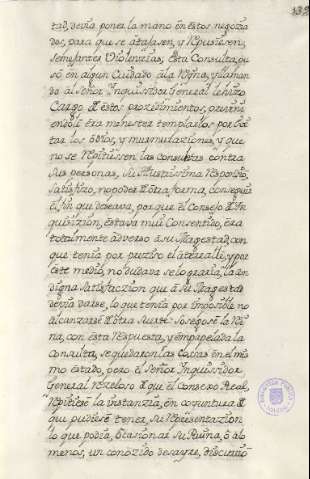 132
tad, devia poner la mano en estos negozia
dos, para que se atajasen, y Repusiesen,
semejantes Violencias, Esta Consulta, pu
so en algun Cuidado a la Reyna, y llaman
do al Señor Inquisidor General le hizo
Cargo de estos prozedimientos, previni
endole era menester templarlos por evi
tar los odios, y murmulaziones, y que
no se Repitiesen las consultas contra
Sus personas, Su Illustrissima Respondio,
Satisfizo, no poder de otra forma, conseguir
el fin que deseava, por que el Consejo de In
quisizion, Estava mui Consentido, era
totalmente adverso a su Magestad, con
que tenia por puesto el aterralle, y por
este medio, no dudava se lograria, la con
digna Satisfaczion que a Su Magestad
devia darse, lo que tenia por imposible no
alcanzarse de otra suerte. Sosegose la Rei
na, con esta Respuesta, y empapelada la
consulta, se quedaron las cosas en el mis
mo estado, pero el Señor Inquisidor
General Rezeloso de que el Consejo Real,
Repitiese la instanzia, en conjuntura de
que pudiese tener, su Representazion
lo que podia, ocasionar su Ruina, o al
menos, un conozido desayre, discurrio